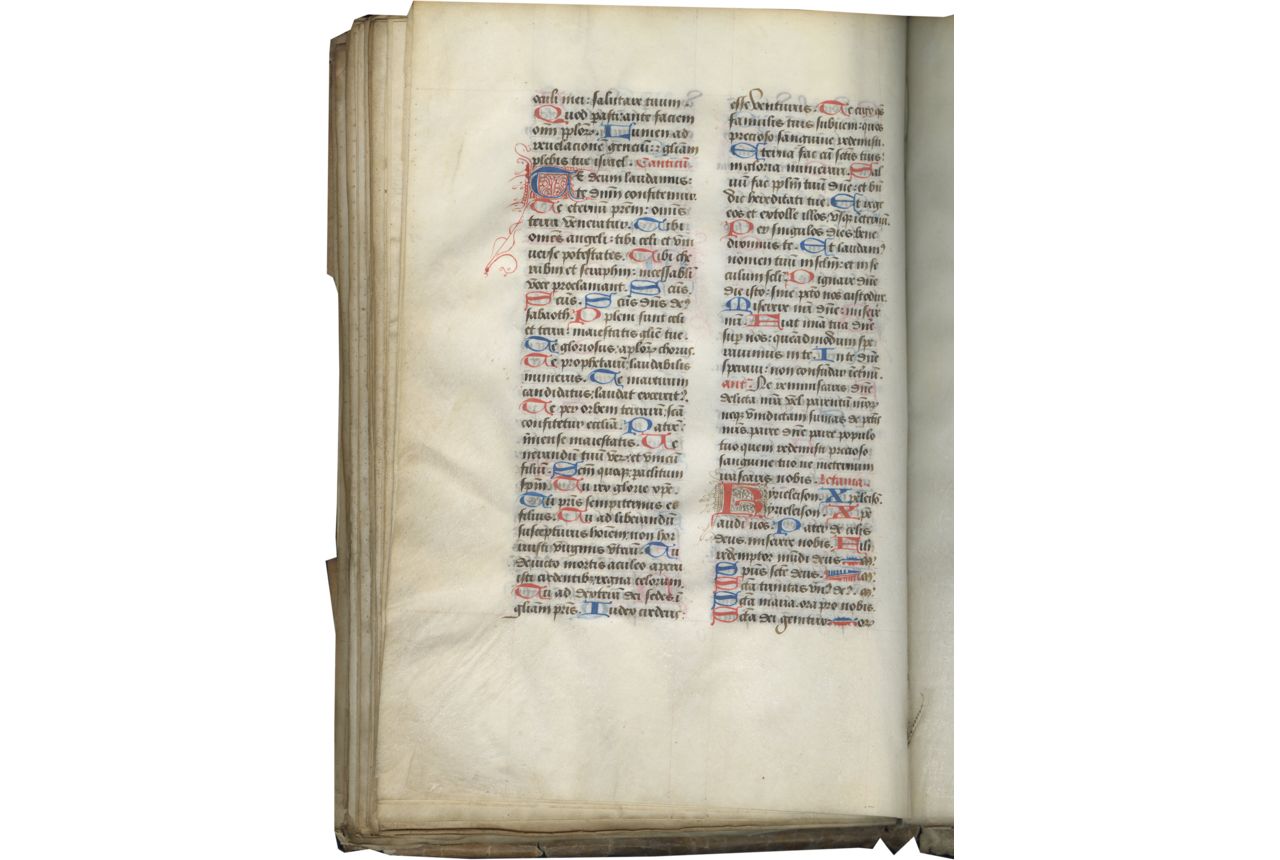 oculi mei: salutare tuum
Quod parasti: ante faciem
omĩ pplorꝫ. Lumen ad
reuelacionẽ genciũ: ⁊ gliam
plebis tue israel. Canticũ
Te deum laudamus:
te dñm confitemur.
Te eternũ prẽm: omĩs
terra veneratur. Tibi
omẽs angeli: tibi celi et vni
uerse potestates. Tibi che
rubin et seraphin: incessabli
voce proclamant. Scũs.
Scũs. Scũs dñs deꝰ
sabaoth. Pleni sunt celi
et terra: maiestatis gliẽ tue.
Te gloriosus: aplorꝫ chorus.
Te prophetarũ: laudabilis
numerus. Te martirum
candidatus: laudat exercitꝰ.
Te per orbem terrarũ: scã
confitetur ecclia. Patrẽ
ĩmense maiestatis. Ue
nerandũ tuũ verũ: et vnicũ
filiũ. Scm̃ quoqꝫ: paclitum
spm̃. Tu rex glorie xp̃e.
Tu pr̃is sempiternus es
filius. Tu ad liberandũ
suscepturus hoiẽm: non hor
ruisti virginis vterũ. Tu
deuicto mortis aculeo: aperu
isti credentibꝫ regna celorum.
Tu ad dexterã dei sedes: ĩ
gliam pr̃is. Iudex crederis:
esse venturus. Te ergo qs̃
famulis tuis subueni: quos
precioso sanguine redemisti.
Eterna fac cũ scĩs tuis:
in gloria numerari. Sal
uũ fac pplm̃ tuũ dñe: et bñ
dic hereditati tue. Et rege
eos et extolle illos: vsqꝫ ĩeternũ.
Per singulos dies: bene
dicimus te. Et laudamꝰ
nomen tuũ in sclm̃: et in se
culum scli. Dignare dñe
die isto: sine pctõ nos custodire.
Miserere nr̃i dñe: misere
nr̃i. Fiat mĩa tua dñe
sup nos: quẽadmodum spe
rauimus in te. In te dñe
speraui: non confundar ĩet'nũ.
ant' Ne reminiscaris dñe
delicta nr̃a vel parentũ nr̃orꝫ
neqꝫ vindictam sumas de pctĩs
nr̃is. parce dñe parce populo
tuo quem redemisti precioso
sanguine tuo ne ineternum
irascaris nobis. letania.
Kyrieleison. Xp̃eleiso.
Kyrieleison. Xp̃e
audi nos. Pater de celis
deus. miserere nobis. Fili
redemptor mũdi deus. m̃.
Spũs scẽ deus. m̃.
Scã trinitas vnꝰ deꝰ. m̃.
Scã maria. ora pro nobis.
Scã dei genitrix. or